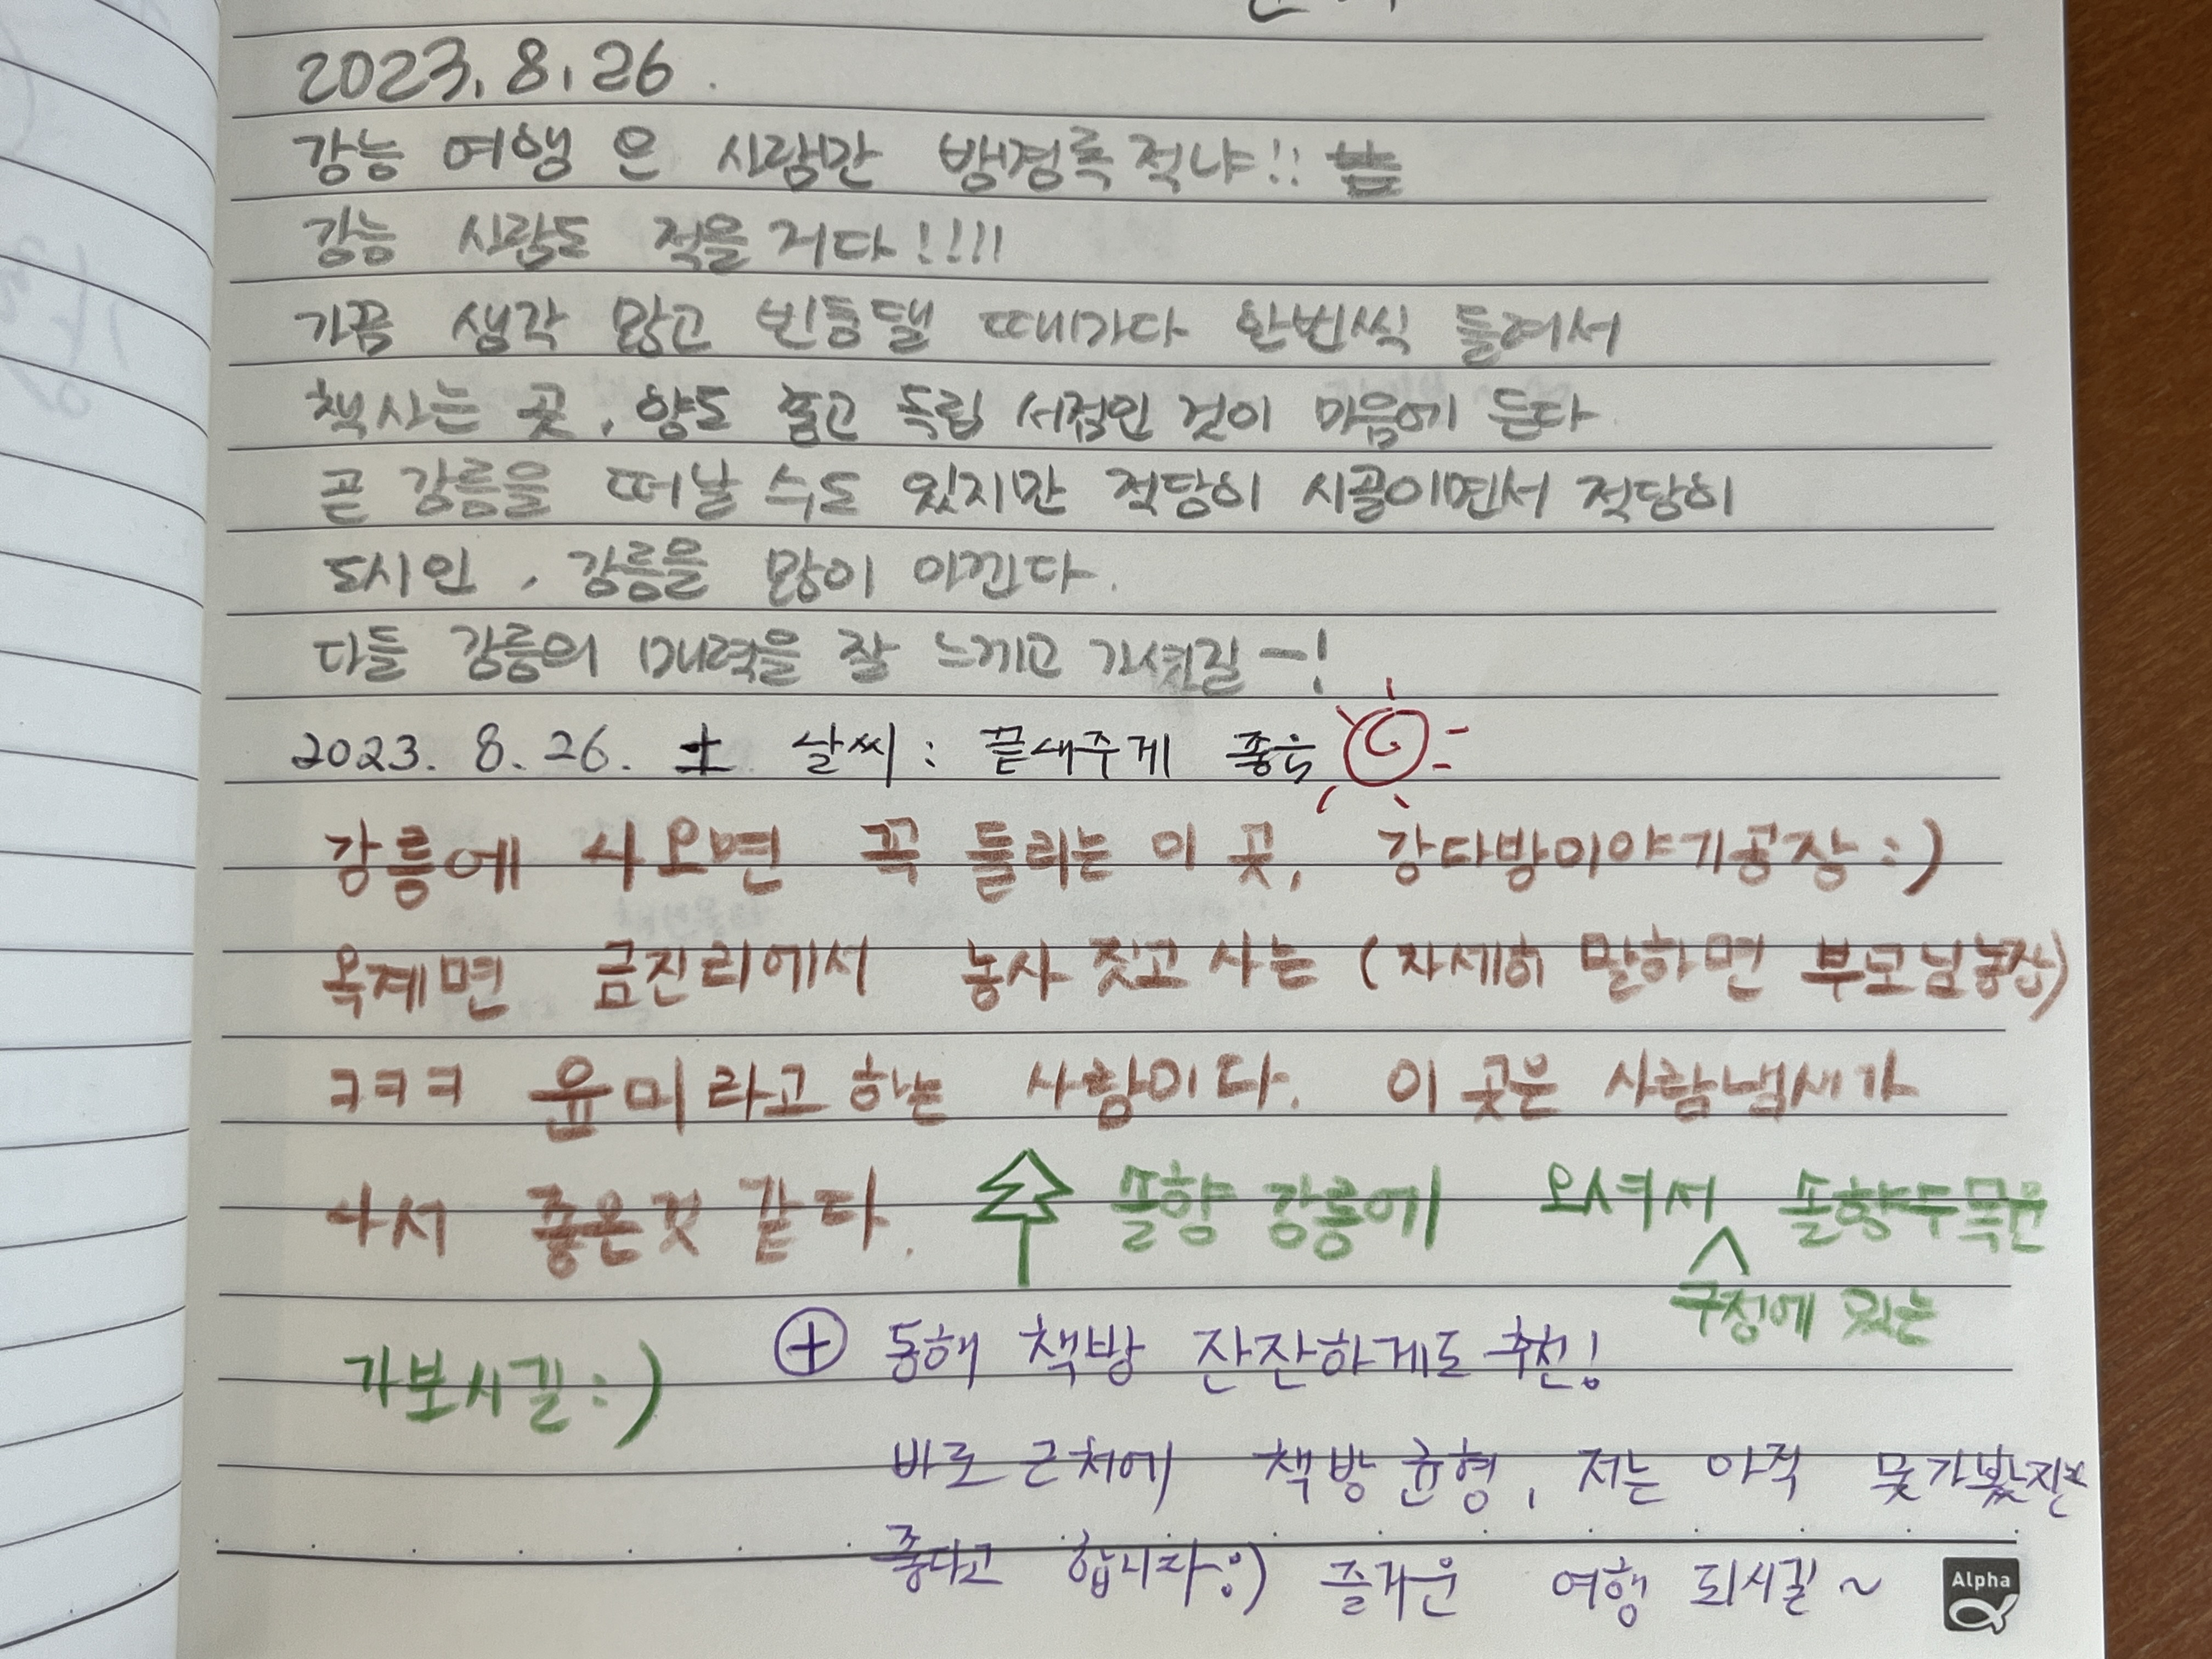 2023. 8. 26.
강능 여행 온 사람만 뱅명록 적냐!!
강능 사람도 적을 거다!!!!
가끔 생각 많고 빈둥댈 때마다 한번씩 들려서
책사는 곳, 양도 줄고 독립 서점인 것이 마음에 든다
곧 강릉을 떠날 수도 있지만 적당히 시골이면서 적당히
도시인, 강릉을 많이 아낀다.
다들 강릉의 매력을 잘 느끼고 가셨길~!
2023. 8. 26. 土 날씨 : 끝내주게 좋음
강릉에 나오면 꼭 들리는 이 곳, 강다방이야기공장 :)
옥계면 금진리에서 농사 짓고 사는 (자세히 말하면 부모님농장)
ㅋㅋㅋ 윤미라고 하는 사람이다. 이 곳은 사람냄새가
나서 좋은것 같다. 솔향 강릉에 오셔서 솔향수목원
구정에 있는
가보시길 :) ⊕ 동해 책방 잔잔하게도 추천!
바로 근처에 책방 균형, 저는 아직 못가봤지만
좋다고 합니다 :) 즐거운 여행 되시길~
Alpha